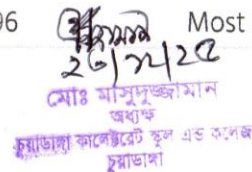 96 Most
২৩/১২/২৫
মোঃ মাসুদুজ্জামান
অধ্যক্ষ
চুয়াডাঙ্গা কালেক্টরেট স্কুল এন্ড কলেজ
চুয়াডাঙ্গা